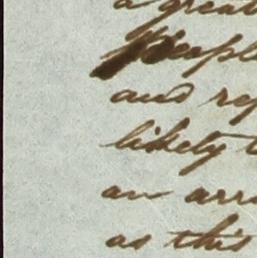 a great
people
and rep
likely t
an arra
as this